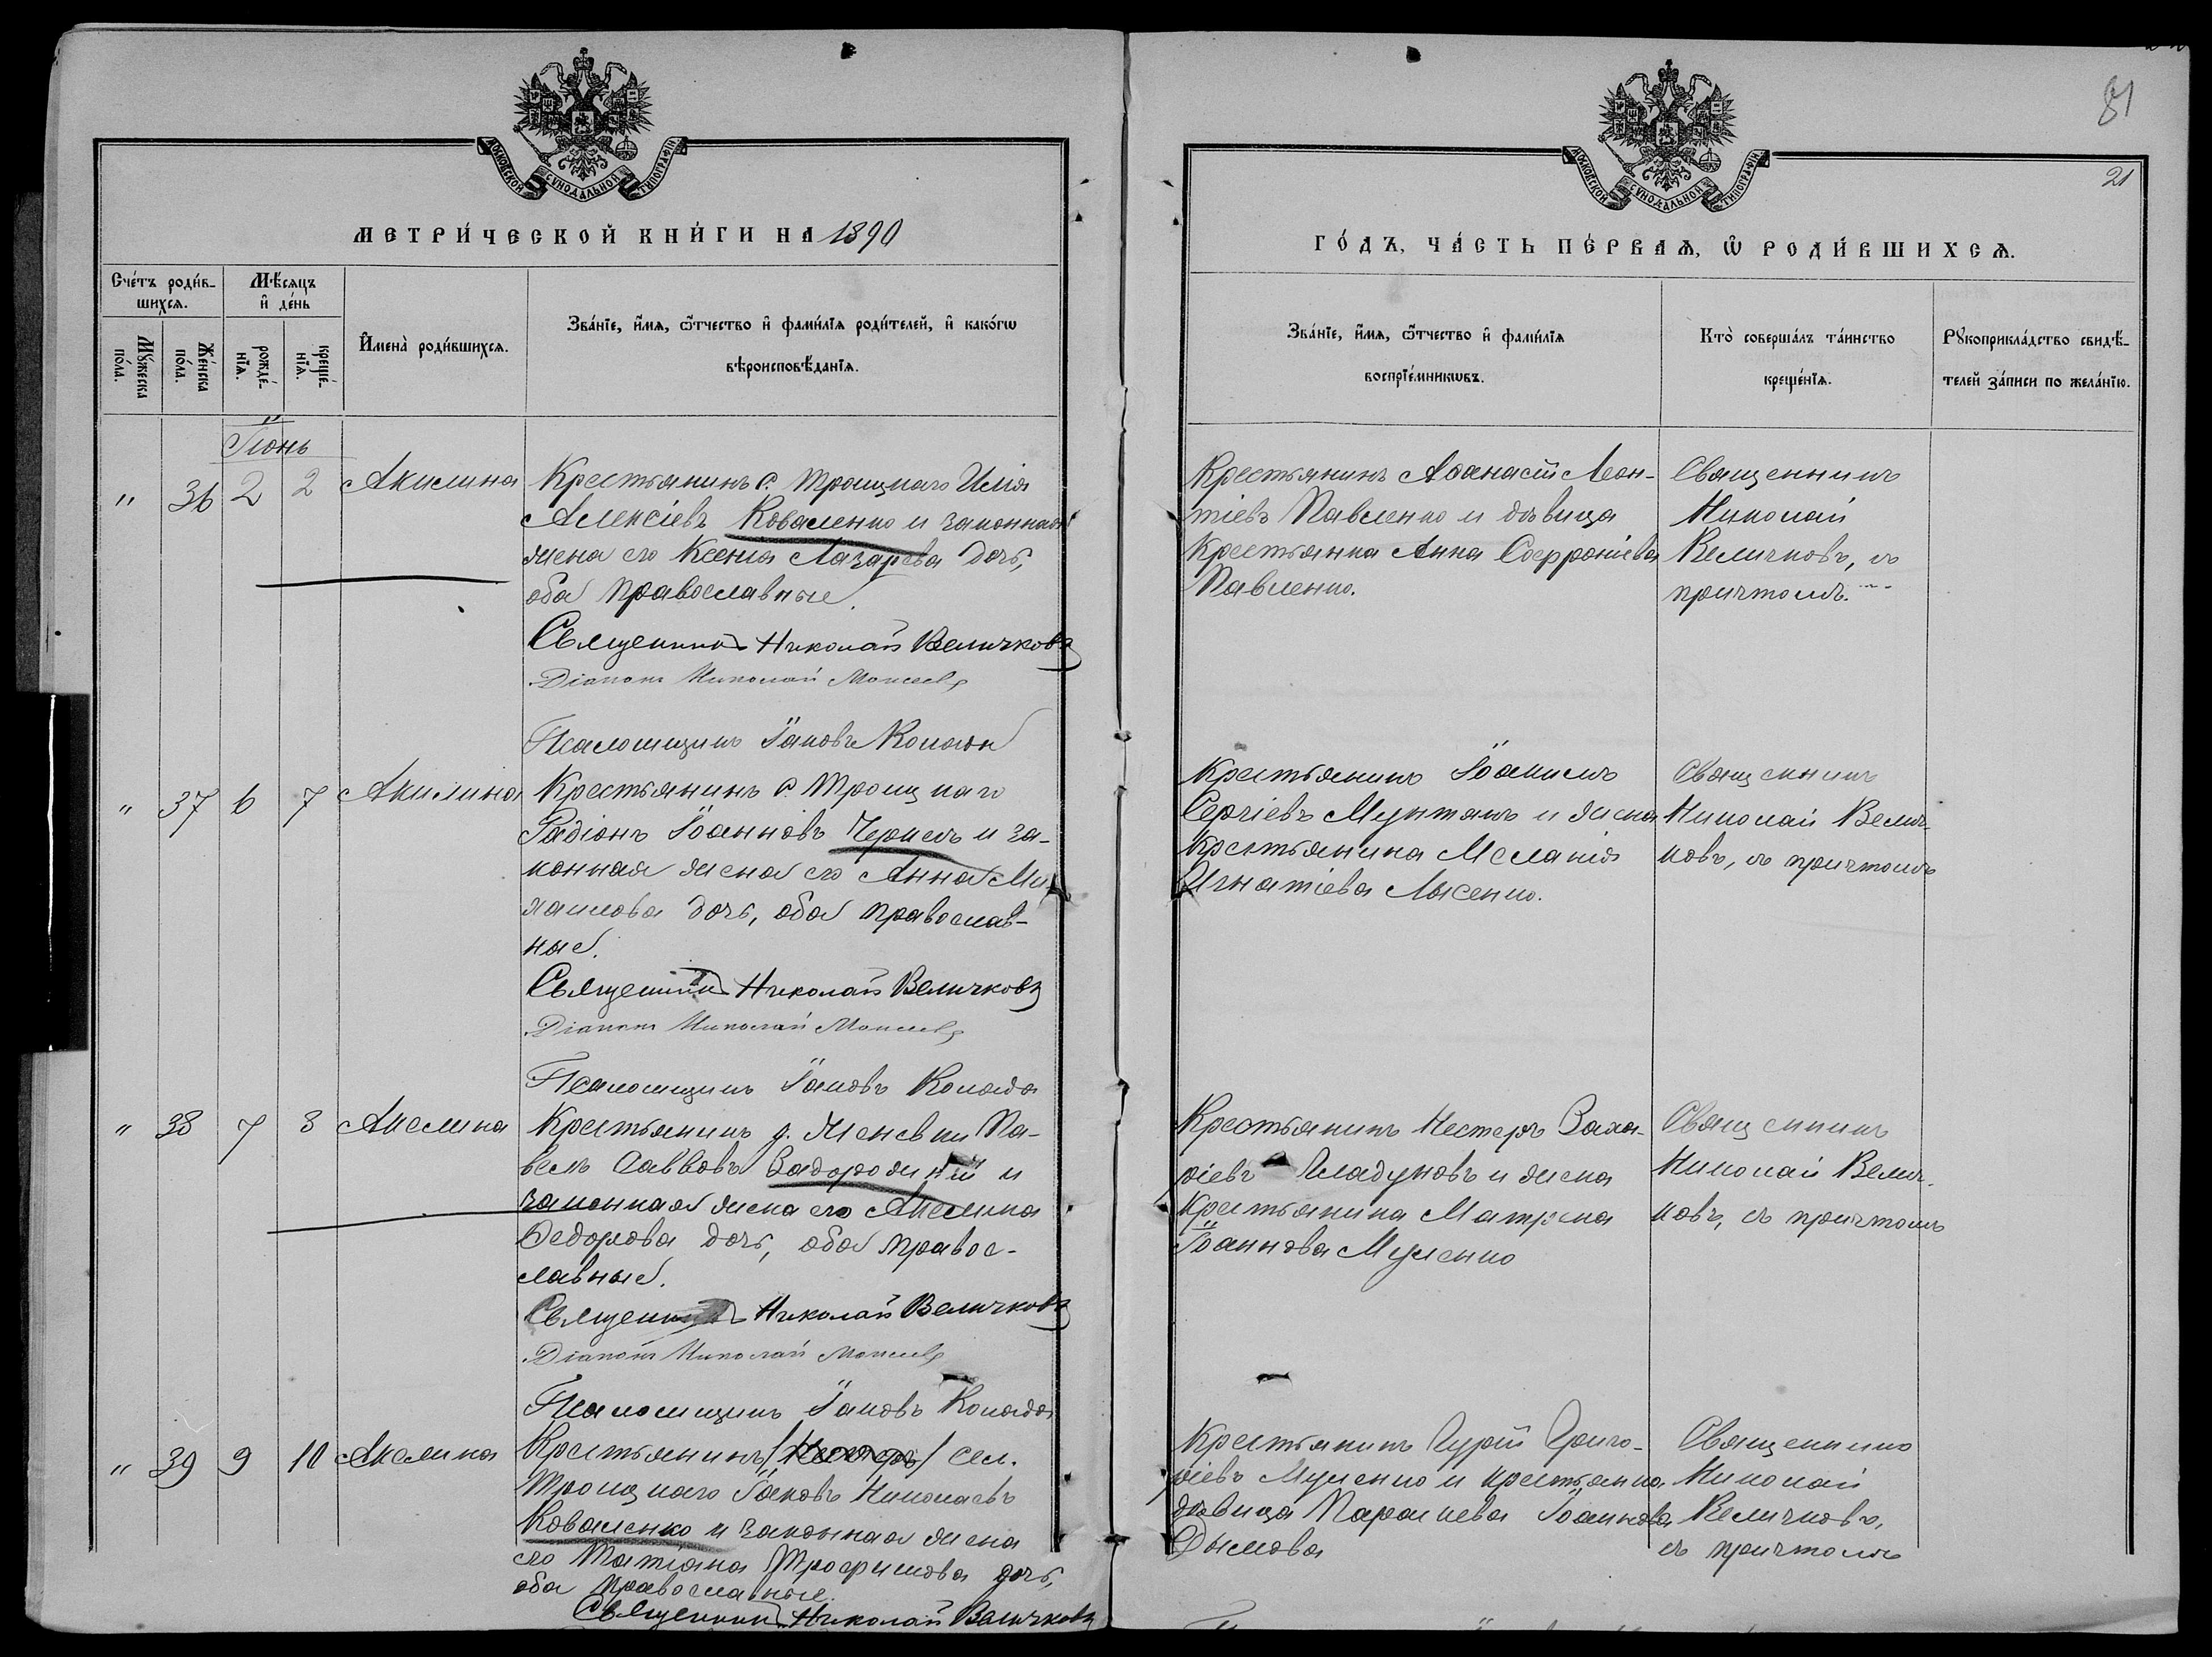 81
21
МОСКОВСКОЙ СѴНОДАЛЬНОЙ ТИПОГРАФІИ
МЕТРИ́ЧЕСКОЙ КНИ́ГИ НА 1890
Сче́тъ роди́в-
шихсѧ.
Мѣ́сѧцъ
и҆ де́нь
Мꙋ́жеска
по́ла.
Же́нска
по́ла.
рожде́-
нїѧ.
креще́-
нїѧ.
И҆мена̀ роди́вшихсѧ.
Зва́нїе, и҆́мѧ, ѻ҆́тчество и҆ фами́лїѧ роди́телей, и҆ како́гѡ
вѣроисповѣ́данїѧ.
Іюнь
" 36 2 2 Акилина
Крестьянинъ с. Троицкаго Илія
Алексіевъ Коваленко и законная
жена его Ксенія Лазарева дочь,
оба православные.
Священникъ Николай Величковъ
Діаконъ Николай Моисеевъ
Псаломщикъ Іаковъ
" 37 6 7 Акилина
Крестьянинъ с. Троицкаго
Радіонъ Іоанновъ и за-
конная жена его Анна Ми-
хаилова дочь, оба православ-
ные.
Священникъ Николай Величковъ
Діаконъ Николай Моисеевъ
Псаломщикъ Іаковъ
" 38 7 8 Акелина
Крестьянинъ д. Па-
велъ Савовъ Задорожній и
законная жена его Акелина
Федорова дочь, оба правос-
лавные.
Священникъ Николай Величковъ
Діаконъ Николай Моисеевъ
Псаломщикъ Іаковъ
" 39 9 10 Акелина
Крестьянинъ сел.
Троицкаго Іаковъ Николаевъ
Коваленко и законная жена
его Татіана Трофимова дочь,
оба православные.
Священникъ Николай Величковъ
МОСКОВСКОЙ СѴНОДАЛЬНОЙ ТИПОГРАФІИ
ГО́ДЪ, ЧА́СТЬ ПЕ́РВАѦ, Ѡ҆ РОДИ́ВШИХСѦ.
Зва́нїе, и҆́мѧ, ѻ҆́тчество и҆ фами́лїѧ
воспрїе́мникѡвъ.
Кто̀ соверша́лъ та́инство
креще́нїѧ.
Рꙋкоприкла́дство свидѣ́-
телей за́писи по жела́нїю.
Крестьянинъ Аѳанасій Леон-
тіевъ Павленко и дѣвица
Крестьянка Анна Софроніева
Павленко.
Священникъ
Николай
Величковъ, съ
причтомъ.
Крестьянинъ Іоакимъ
Сергіевъ Мунтянъ и жена
Крестьянина Меланія
Игнатіева Лысенко.
Священникъ
Николай Велич-
ковъ, съ причтомъ
Крестьянинъ Нестеръ Заха-
ріевъ Гладуновъ и жена
Крестьянина Матрена
Іоаннова
Священникъ
Николай Велич-
ковъ, съ причтомъ
Крестьянинъ Гурій Григо-
ріевъ и крестьянка
дѣвица Параскева Іоаннова
Дымова
Священникъ
Николай
Величковъ,
съ причтомъ